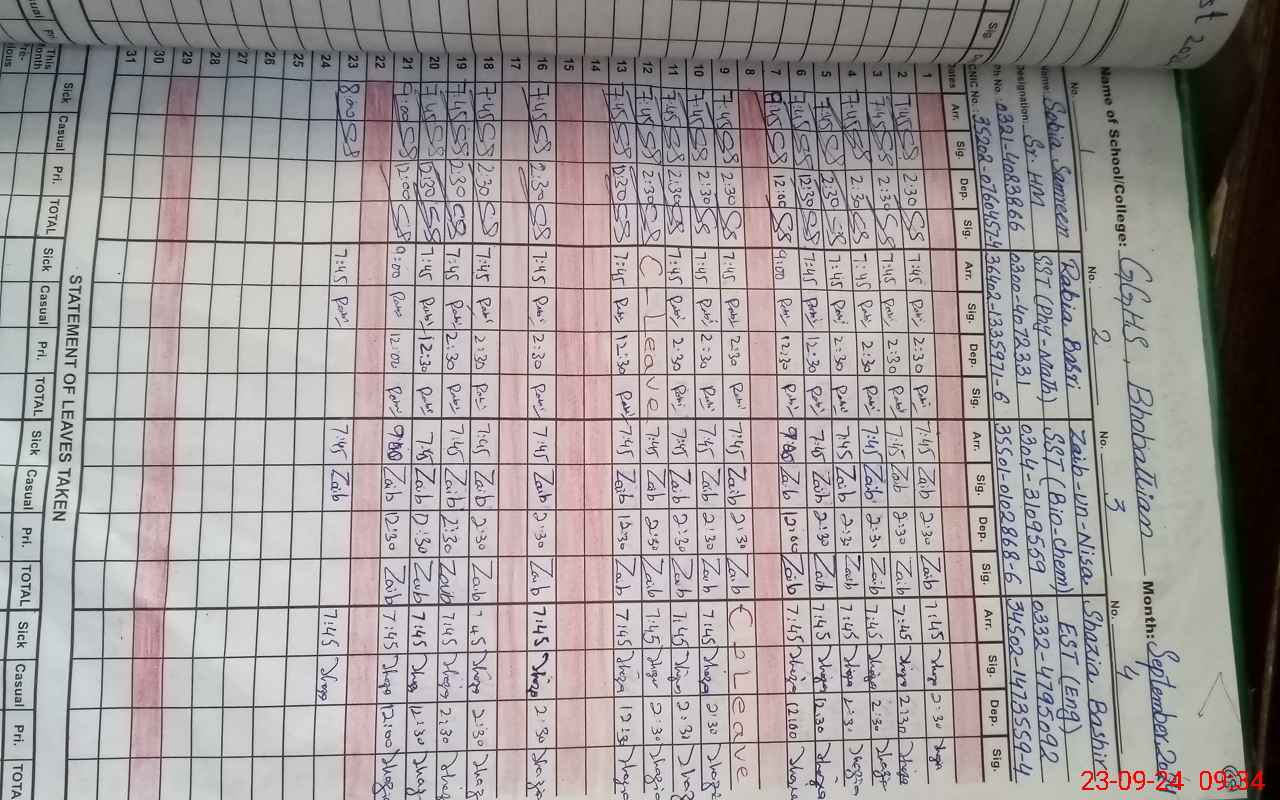 Name of School/College: GGHS, Bhobattian Month: September 2024
No. 1 No. 2 No. 3 No. 4
Name: Sobia Sameen Rabia Basri Zaib-un-Nisa Shazia Bashir
Designation: Sr. HM SST (Phy-Math) SST (Bio-chem) EST (Eng)
Ph No. 0321-4083866 0300-4072331 0304-3109559 0332-4795092
CNIC No.: 35202-0760457-4 36402-1335971-6 35501-0102868-6 34502-1473559-4
Dates Arr. Sig. Dep. Sig. Arr. Sig. Dep. Sig. Arr. Sig. Dep. Sig. Arr. Sig. Dep. Sig.
1
2 7:45 SS 2:30 SS 7:45 Rabi 2:30 Rabi 7:45 Zaib 2:30 Zaib 7:45 Shazia 2:30 Shazia
3 7:45 SS 2:30 SS 7:45 Rabi 2:30 Rabi 7:45 Zaib 2:30 Zaib 7:45 Shazia 2:30 Shazia
4 7:45 SS 2:30 SS 7:45 Rabi 2:30 Rabi 7:45 Zaib 2:30 Zaib 7:45 Shazia 2:30 Shazia
5 7:45 SS 2:30 SS 7:45 Rabi 2:30 Rabi 7:45 Zaib 2:30 Zaib 7:45 Shazia 2:30 Shazia
6 7:45 SS 12:30 SS 7:45 Rabi 12:30 Rabi 7:45 Zaib 2:30 Zaib 7:45 Shazia 12:30 Shazia
7 SS 12:00 SS 9:00 Rabi 12:30 Rabi Zaib 12:00 Zaib 7:45 Shazia 12:00 Shazia
8
9 7:45 SS 2:30 SS 7:45 Rabi 2:30 Rabi 7:45 Zaib 2:30 Zaib C Leave
10 7:45 SS 2:30 SS 7:45 Rabi 2:30 Rabi 7:45 Zaib 2:30 Zaib 7:45 Shazia 2:30 Shazia
11 7:45 SS 2:30 SS 7:45 Rabi 2:30 Rabi 7:45 Zaib 2:30 Zaib 7:45 Shazia 2:30 Shazia
12 7:45 SS 2:30 SS C-Leave 7:45 Zaib 2:30 Zaib 7:45 Shazia 2:30 Shazia
13 7:45 SS 12:30 SS 7:45 Rabi 12:30 Rabi 7:45 Zaib 12:30 Zaib 7:45 Shazia 12:30 Shazia
14
15
16 7:45 SS 2:30 SS 7:45 Rabi 2:30 Rabi 7:45 Zaib 2:30 Zaib 7:45 Shazia 2:30 Shazia
17
18 7:45 SS 2:30 SS 7:45 Rabi 2:30 Rabi 7:45 Zaib 2:30 Zaib 7:45 Shazia 2:30 Shazia
19 7:45 SS 2:30 SS 7:45 Rabi 2:30 Rabi 7:45 Zaib 2:30 Zaib 7:45 Shazia 2:30 Shazia
20 7:45 SS 12:30 SS 7:45 Rabi 12:30 Rabi 7:45 Zaib 12:30 Zaib 7:45 Shazia 12:30 Shazia
21 9:00 SS 12:00 SS 9:00 Rabi 12:00 Rabi Zaib 12:30 Zaib 7:45 Shazia 12:00 Shazia
22
23 8:00 SS 7:45 Rabi 7:45 Zaib 7:45 Shazia
24
25
26
27
28
29
30
31
STATEMENT OF LEAVES TAKEN
Sick Casual Pri. TOTAL Sick Casual Pri. TOTAL Sick Casual Pri. TOTAL Sick Casual Pri. TOTA
This Month
23-09-24 09:34